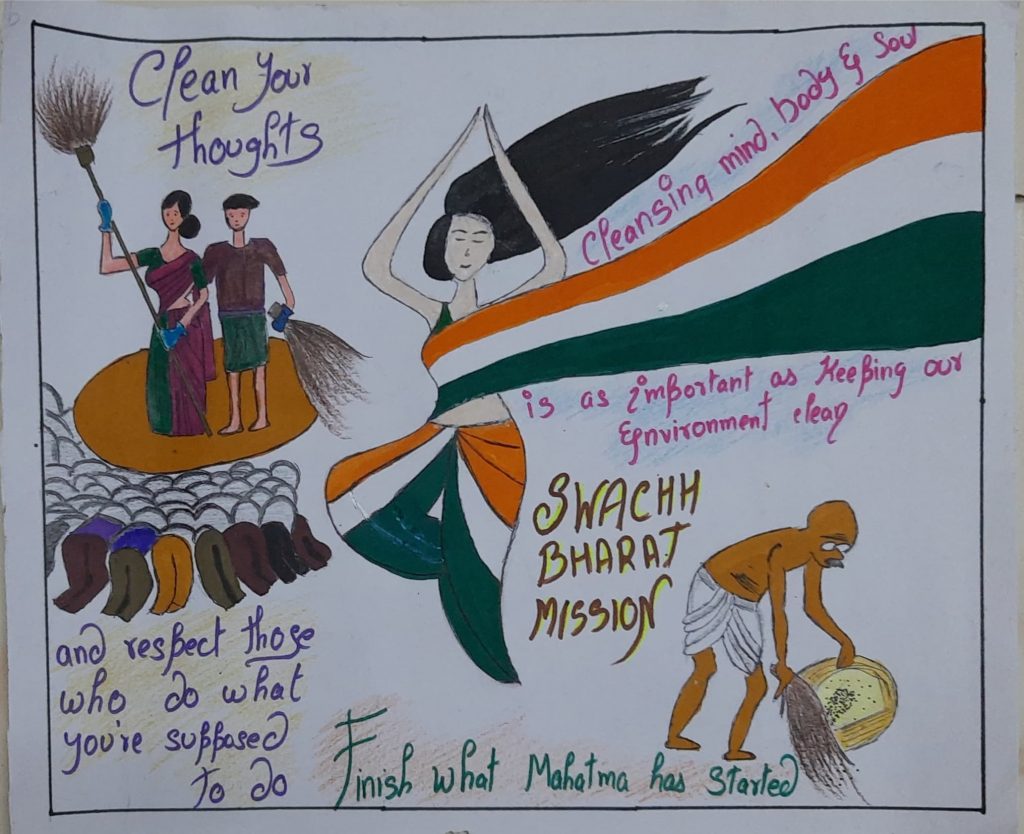 Clean Your
thoughts
Cleansing mind, body & Soul
is as important as Keeping our
Environment clean
SWACHH
BHARAT
MISSION
and respect those
who do what
you're supposed
to do
Finish what Mahatma has started